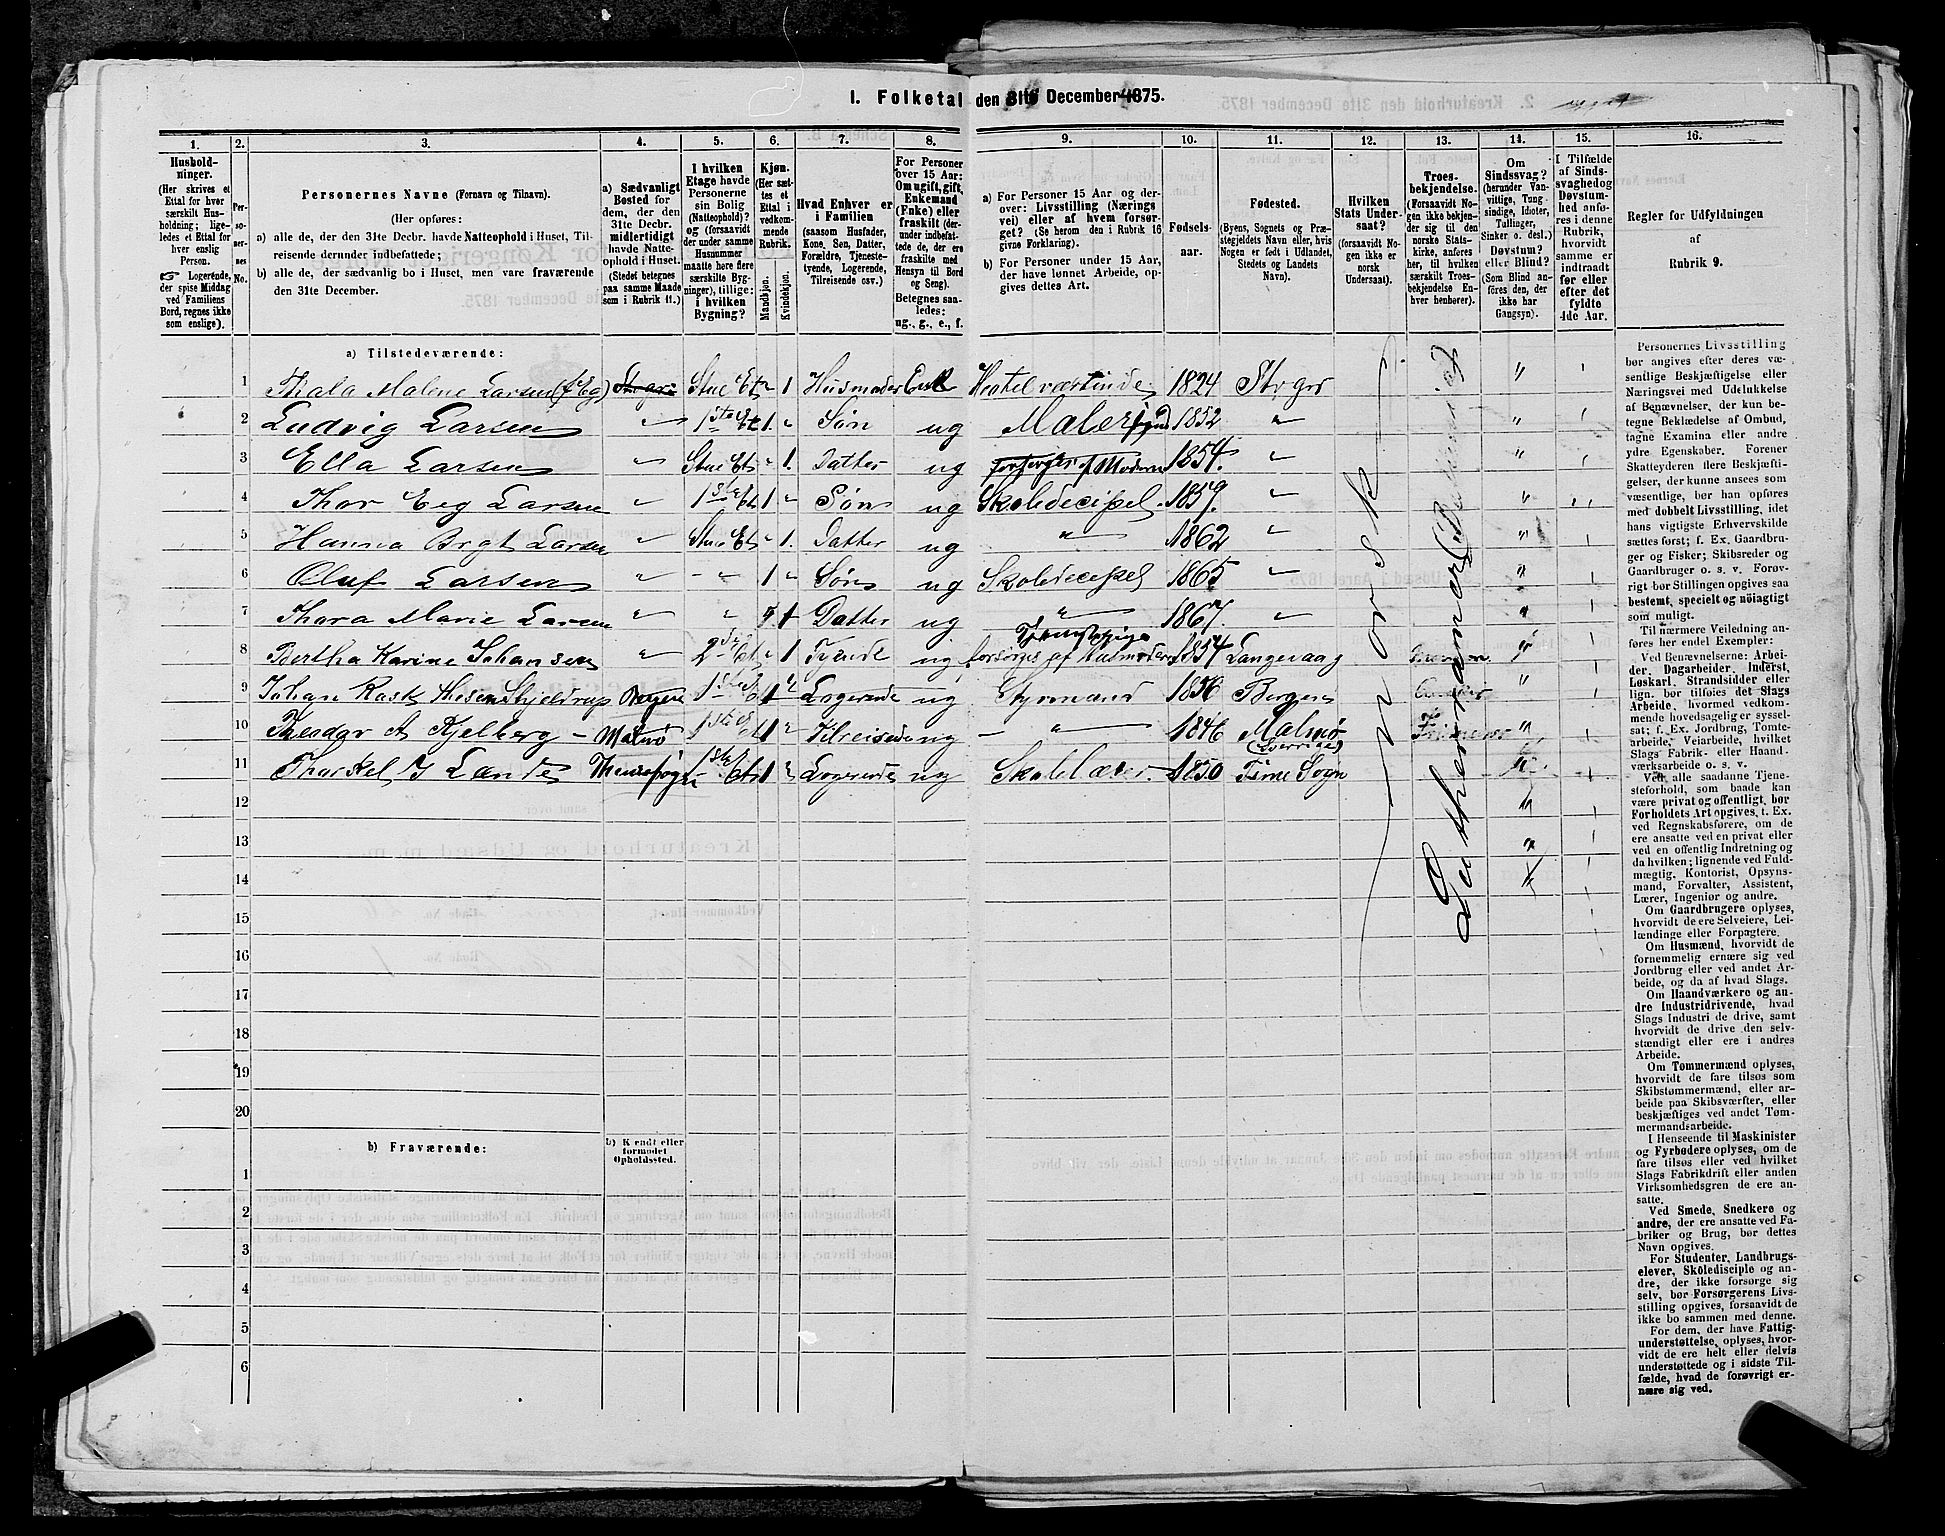 I. Folketal den 31te December 1875.
1. 2. 3. 4. 5. 6. 7. 8. 9. 10. 11. 12. 13. 14. 15. 16.
Husholdninger.
(Her skrives et Ettal for hver særskilt Husholdning; ligeledes et Ettal for hver enslig Person.
☞ Logerende, der spise Middag ved Familiens Bord, regnes ikke som enslige).
Personernes No.
Personernes Navne (Fornavn og Tilnavn).
(Her opføres:
a) alle de, der den 31te Decbr. havde Natteophold i Huset, Tilreisende derunder indbefattede;
b) alle de, der sædvanlig bo i Huset, men vare fraværende den 31te December.
a) Sædvanligt Bosted for dem, der den 31te Decbr. midlertidigt havde Natteophold i Huset.
(Stedet betegnes paa samme Maade som i Rubrik 11.)
I hvilken Etage havde Personerne sin Bolig (Natteophold)? og (forsaavidt der under samme Husnummer maatte høre flere særskilte Bygninger), tillige: i hvilken Bygning?
Kjøn.
(Her sættes et Ettal i vedkommende Rubrik.
Mandkjøn. Kvindekjøn.
Hvad Enhver er i Familien
(saasom Husfader, Kone, Søn, Datter, Forældre, Tjenestetyende, Logerende, Tilreisende osv.)
For Personer over 15 Aar: Om ugift, gift, Enkemand (Enke) eller fraskilt (derunder indbefattede de, der ere fraskilte med Hensyn til Bord og Seng).
Betegnes saaledes:
ug., g., e., f.
a) For Personer 15 Aar og derover: Livsstilling (Nærings vei) eller af hvem forsørget? (Se herom den i Rubrik 16 givne Forklaring).
b) For Personer under 15 Aar, der have lønnet Arbeide, opgives dettes Art.
Fødselsaar.
Fødested.
(Byens, Sognets og Præstegjeldets Navn eller, hvis Nogen er født i Udlandet, Stedets og Landets Navn).
Hvilken Stats Undersaat?
(forsaavidt Nogen ikke er norsk Undersaat).
Troesbekjendelse.
(Forsaavidt Nogen ikke bekjender sig til den norske Statskirke, anføres her, til hvilken særskilt Troesbekjendelse Enhver henhører).
Om Sindssvag? (herunder Vanvittige, Tungsindige, Idioter, Tullinger, Sinker o. desl.) Døvstum? eller Blind? (Som Blind anføres den, der ikke har Gangsyn).
I Tilfælde af Sindssvaghed og Døvstumhed anføres i denne Rubrik, hvorvidt samme er indtraadt før eller efter det fyldte 4de Aar.
Regler for Udfyldningen
af
Rubrik 9.
a) Tilstedeværende:
1 Thala Malene Larsen (f Eg) Stue Et " 1 Husmoder Enk Hotelværtinde 1824
2 Ludvig Larsen " 1ste Et 1 " Søn ug Maler 1852 "
3 Ella Larsen " Stue Et " 1. Datter ug forsørges af Moderen 1854. "
4 Thor Eeg Larsen " 1ste Et. 1 " Søn ug Skoledecipel. 1859. "
5 Hanna Brgt Larsen " Stue Et " 1. Datter ug " 1862 "
6 Oluf Larsen " " 1 " Søn ug Skoledecipel 1865 "
7 Thora Marie Larsen " " " 1 Datter ug " 1867. "
8 Bertha Karine Johansen " 2den Et. " 1 Tyende ug Tjenestepige forsørges af Husmoderen 1854 Langevaag
9 Johan Rask Stjeldrup Bergen 1ste Et 1 " Logerende ug Styrmand 1856 Bergen
10 A Kjelberg - Malmø 1ste Et 1 " Tilreisende ug - " - 1846 Malmø (Sverrige)
11 Thorkel J Lande 1ste Et. 1 " Logerende ug Skolelærer. 1850 Time Sogn
Norsk
12
13
14
15
16
17
18
19
20
b) Fraværende:
b) Kjendt eller formodet Opholdssted.
1
2
3
4
5
6
Personernes Livsstilling bør angives efter deres væsentlige Beskjæftigelse eller Næringsvei med Udelukkelse af Benævnelser, der kun betegne Beklædelse af Ombud, tagne Examina eller andre ydre Egenskaber. Forener Skatteyderen flere Beskjæftigelser, der kunne ansees som væsentlige, bør han opføres med dobbelt Livsstilling, idet hans vigtigste Erhvervskilde sættes først; f. Ex. Gaardbruger og Fisker; Skibsreder og Gaardbruger o. s. v. Forøvrigt bør Stillingen opgives saa bestemt, specielt og nøiagtigt som muligt.
Til nærmere Veiledning anføres her endel Exempler:
Ved Benævnelserne: Arbeider, Dagarbeider, Inderst, Løskarl, Strandsidder eller lign. bør tilføies det Slags Arbeide, hvormed vedkommende hovedsagelig er sysselsat; f. Ex. Jordbrug, Tomtearbeide, Veiarbeide, hvilket Slags Fabrik- eller Haandværksarbeide o. s. v.
Ved alle saadanne Tjenesteforhold, som baade kan være privat og offentligt, bør Forholdets Art opgives, f. Ex. ved Regnskabsførere, om de ere ansatte ved en privat eller ved en offentlig Indretning og da hvilken; lignende ved Fuldmægtig, Kontorist, Opsynsmand, Forvalter, Assistent, Lærer, Ingeniør og andre.
Om Gaardbrugere oplyses, hvorvidt de ere Selveiere, Leilændinge eller Forpagtere.
Om Husmænd, hvorvidt de fornemmelig ernære sig ved Jordbrug eller ved andet Arbeide, og da af hvad Slags.
Om Haandværkere og andre Industridrivende, hvad Slags Industri de drive, samt hvorvidt de drive den selvstændigt eller ere i andres Arbeide.
Om Tømmermænd oplyses, hvorvidt de fare tilsøs som Skibstømmermænd, eller arbeide paa Skibsværfter, eller beskjæftiges ved andet Tømmermandsarbeide.
I Henseende til Maskinister og Fyrbødere oplyses, om de fare tilsøs eller ved hvilket Slags Fabrikdrift eller anden Virksomhedsgren de ere ansatte.
Ved Smede, Snedkere og andre, der ere ansatte ved Fabriker og Brug, bør dettes Navn opgives.
For Studenter, Landbrugselever, Skoledisciple og andre, der ikke forsørge sig selv, bør Forsørgerens Livsstilling opgives, forsaavidt de ikke bo sammen med denne.
For dem, der have Fattigunderstøttelse, oplyses, hvorvidt de ere helt eller delvis understøttede og i sidste Tilfælde, hvad de forøvrigt ernære sig ved.